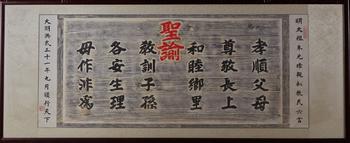 聖諭
明太祖朱元璋教民六言
孝順父母
尊敬長上
和睦鄉里
教訓子孫
各安生理
毋作非為
大明洪武三十一年九月頒行天下